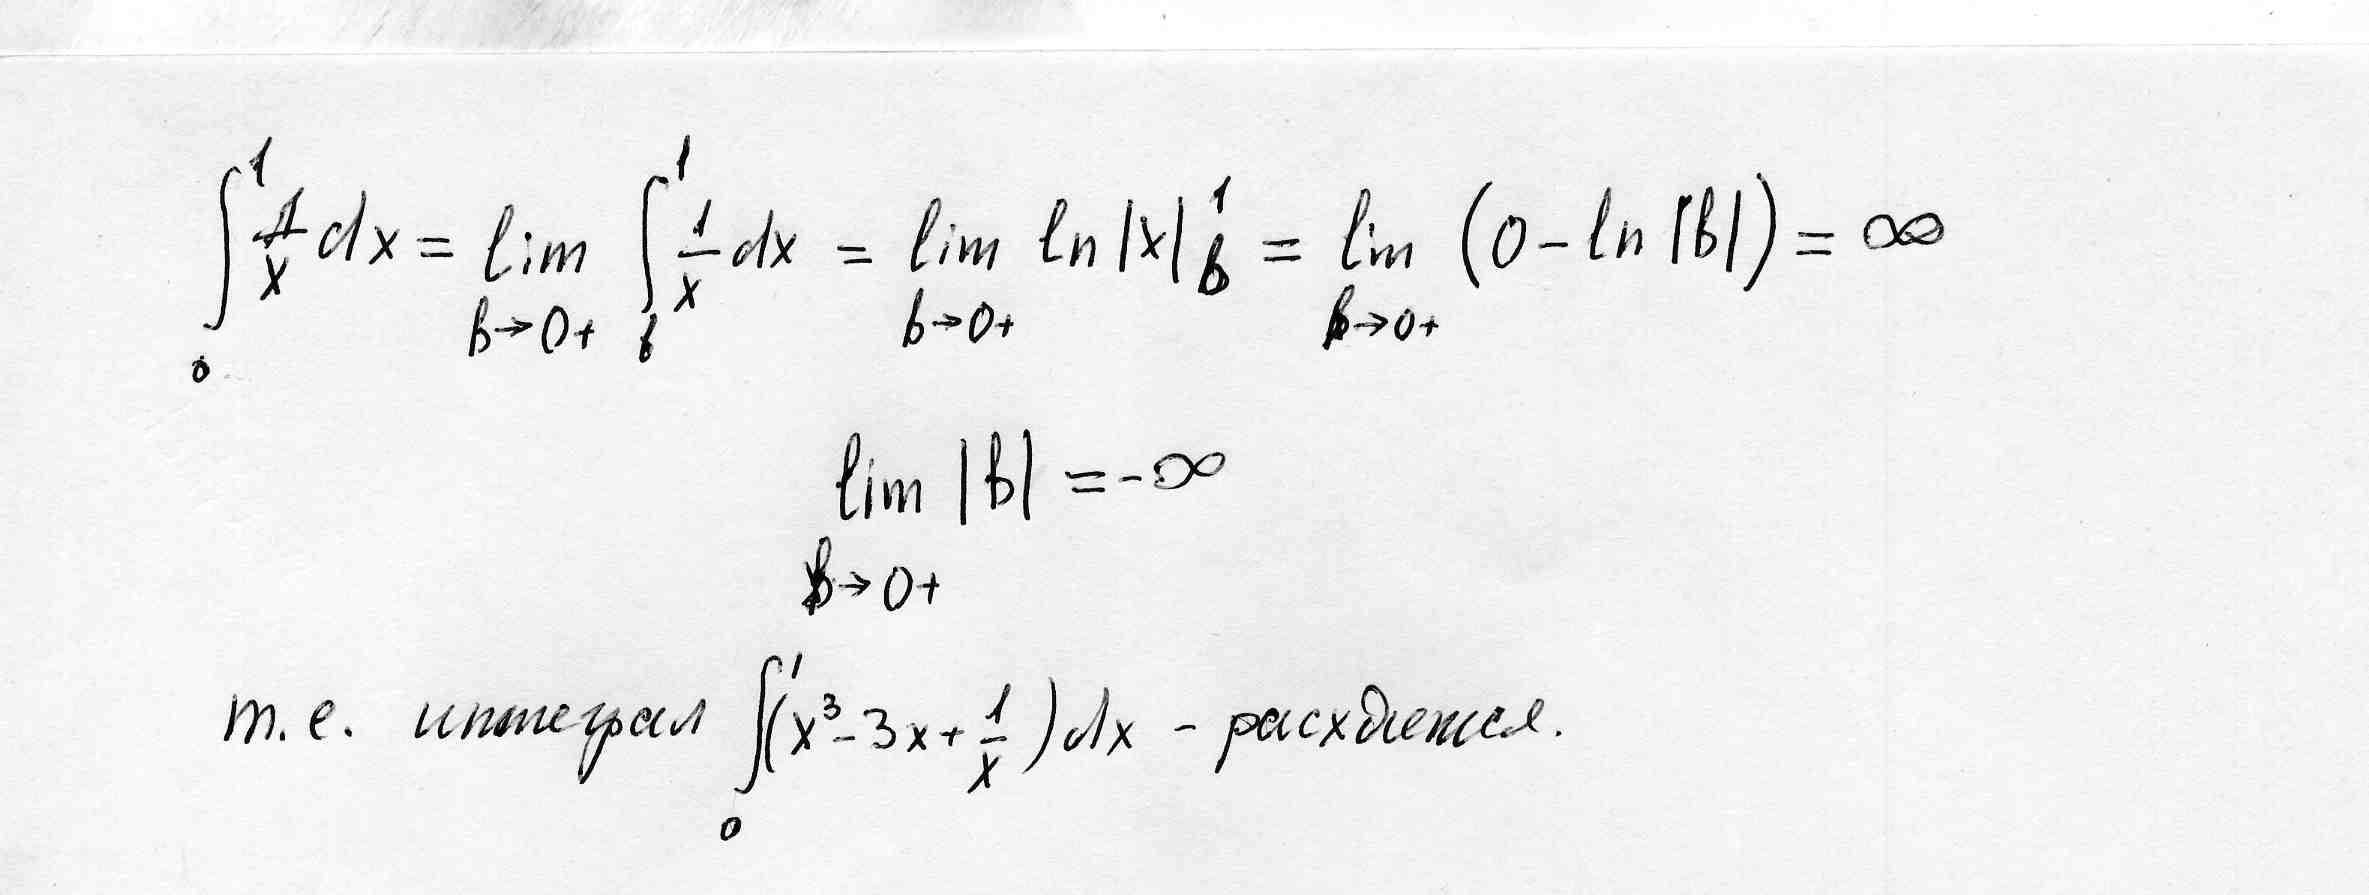 ∫₀¹ 1/x dx = lim_{b→0+} ∫_b¹ 1/x dx = lim_{b→0+} ln|x| |_b¹ = lim_{b→0+} (0 - ln|b|) = ∞
lim_{b→0+} |b| = -∞
т.е. интеграл ∫₀¹ (x³ - 3x + 1/x) dx - расходится.